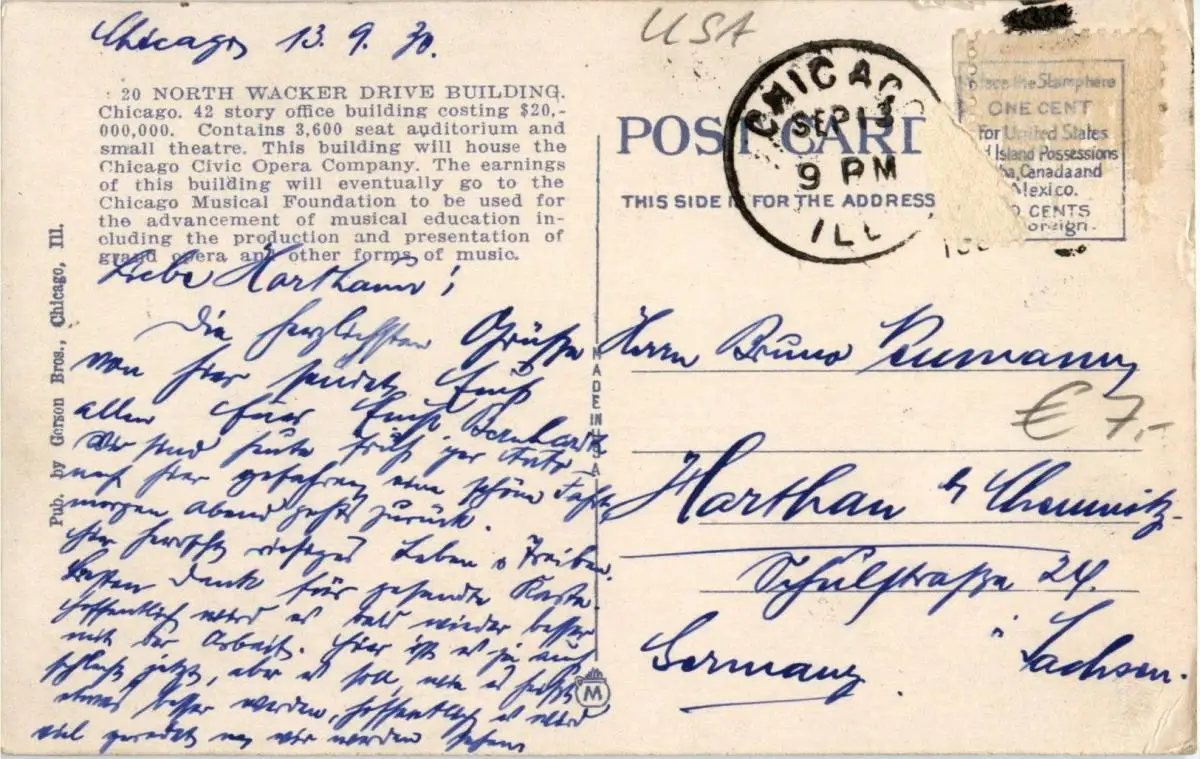 Chicago, 13. 9. 30.
20 NORTH WACKER DRIVE BUILDING.
Chicago. 42 story office building costing $20,-
000,000. Contains 3,600 seat auditorium and
small theatre. This building will house the
Chicago Civic Opera Company. The earnings
of this building will eventually go to the
Chicago Musical Foundation to be used for
the advancement of musical education in-
cluding the production and presentation of
grand opera and other forms of music.
Liebe Harthauer!
Die herzlichsten Grüße
von hier sendet Euch
allen Euer Bernhard.
Wir sind heute früh per Auto
nach hier gefahren eine schöne Fahrt,
morgen abend gehts zurück.
Hier herrscht riesiges Leben u Treiben.
Besten Dank für gesandte Karte.
Hoffentlich wird es bald wieder besser
mit der Arbeit. Hier ist es ja auch
schlecht jetzt, aber es soll, wie es heißt
etwas besser werden, hoffentlich es wird
viel geredet wir werden sehen
Pub. by Gerson Bros., Chicago, Ill.
MADE IN U.S.A.
M
USA
CHICAGO
SEP 13
9 PM
ILL
POST CARD
THIS SIDE IS FOR THE ADDRESS
Place the Stamp here
ONE CENT
For United States
Island Possessions
Canada and
Mexico.
CENTS
Foreign.
Herrn Bruno Neumann
€ 7,-
Harthau b/ Chemnitz.
Schulstraße 24.
Germany. Sachsen.